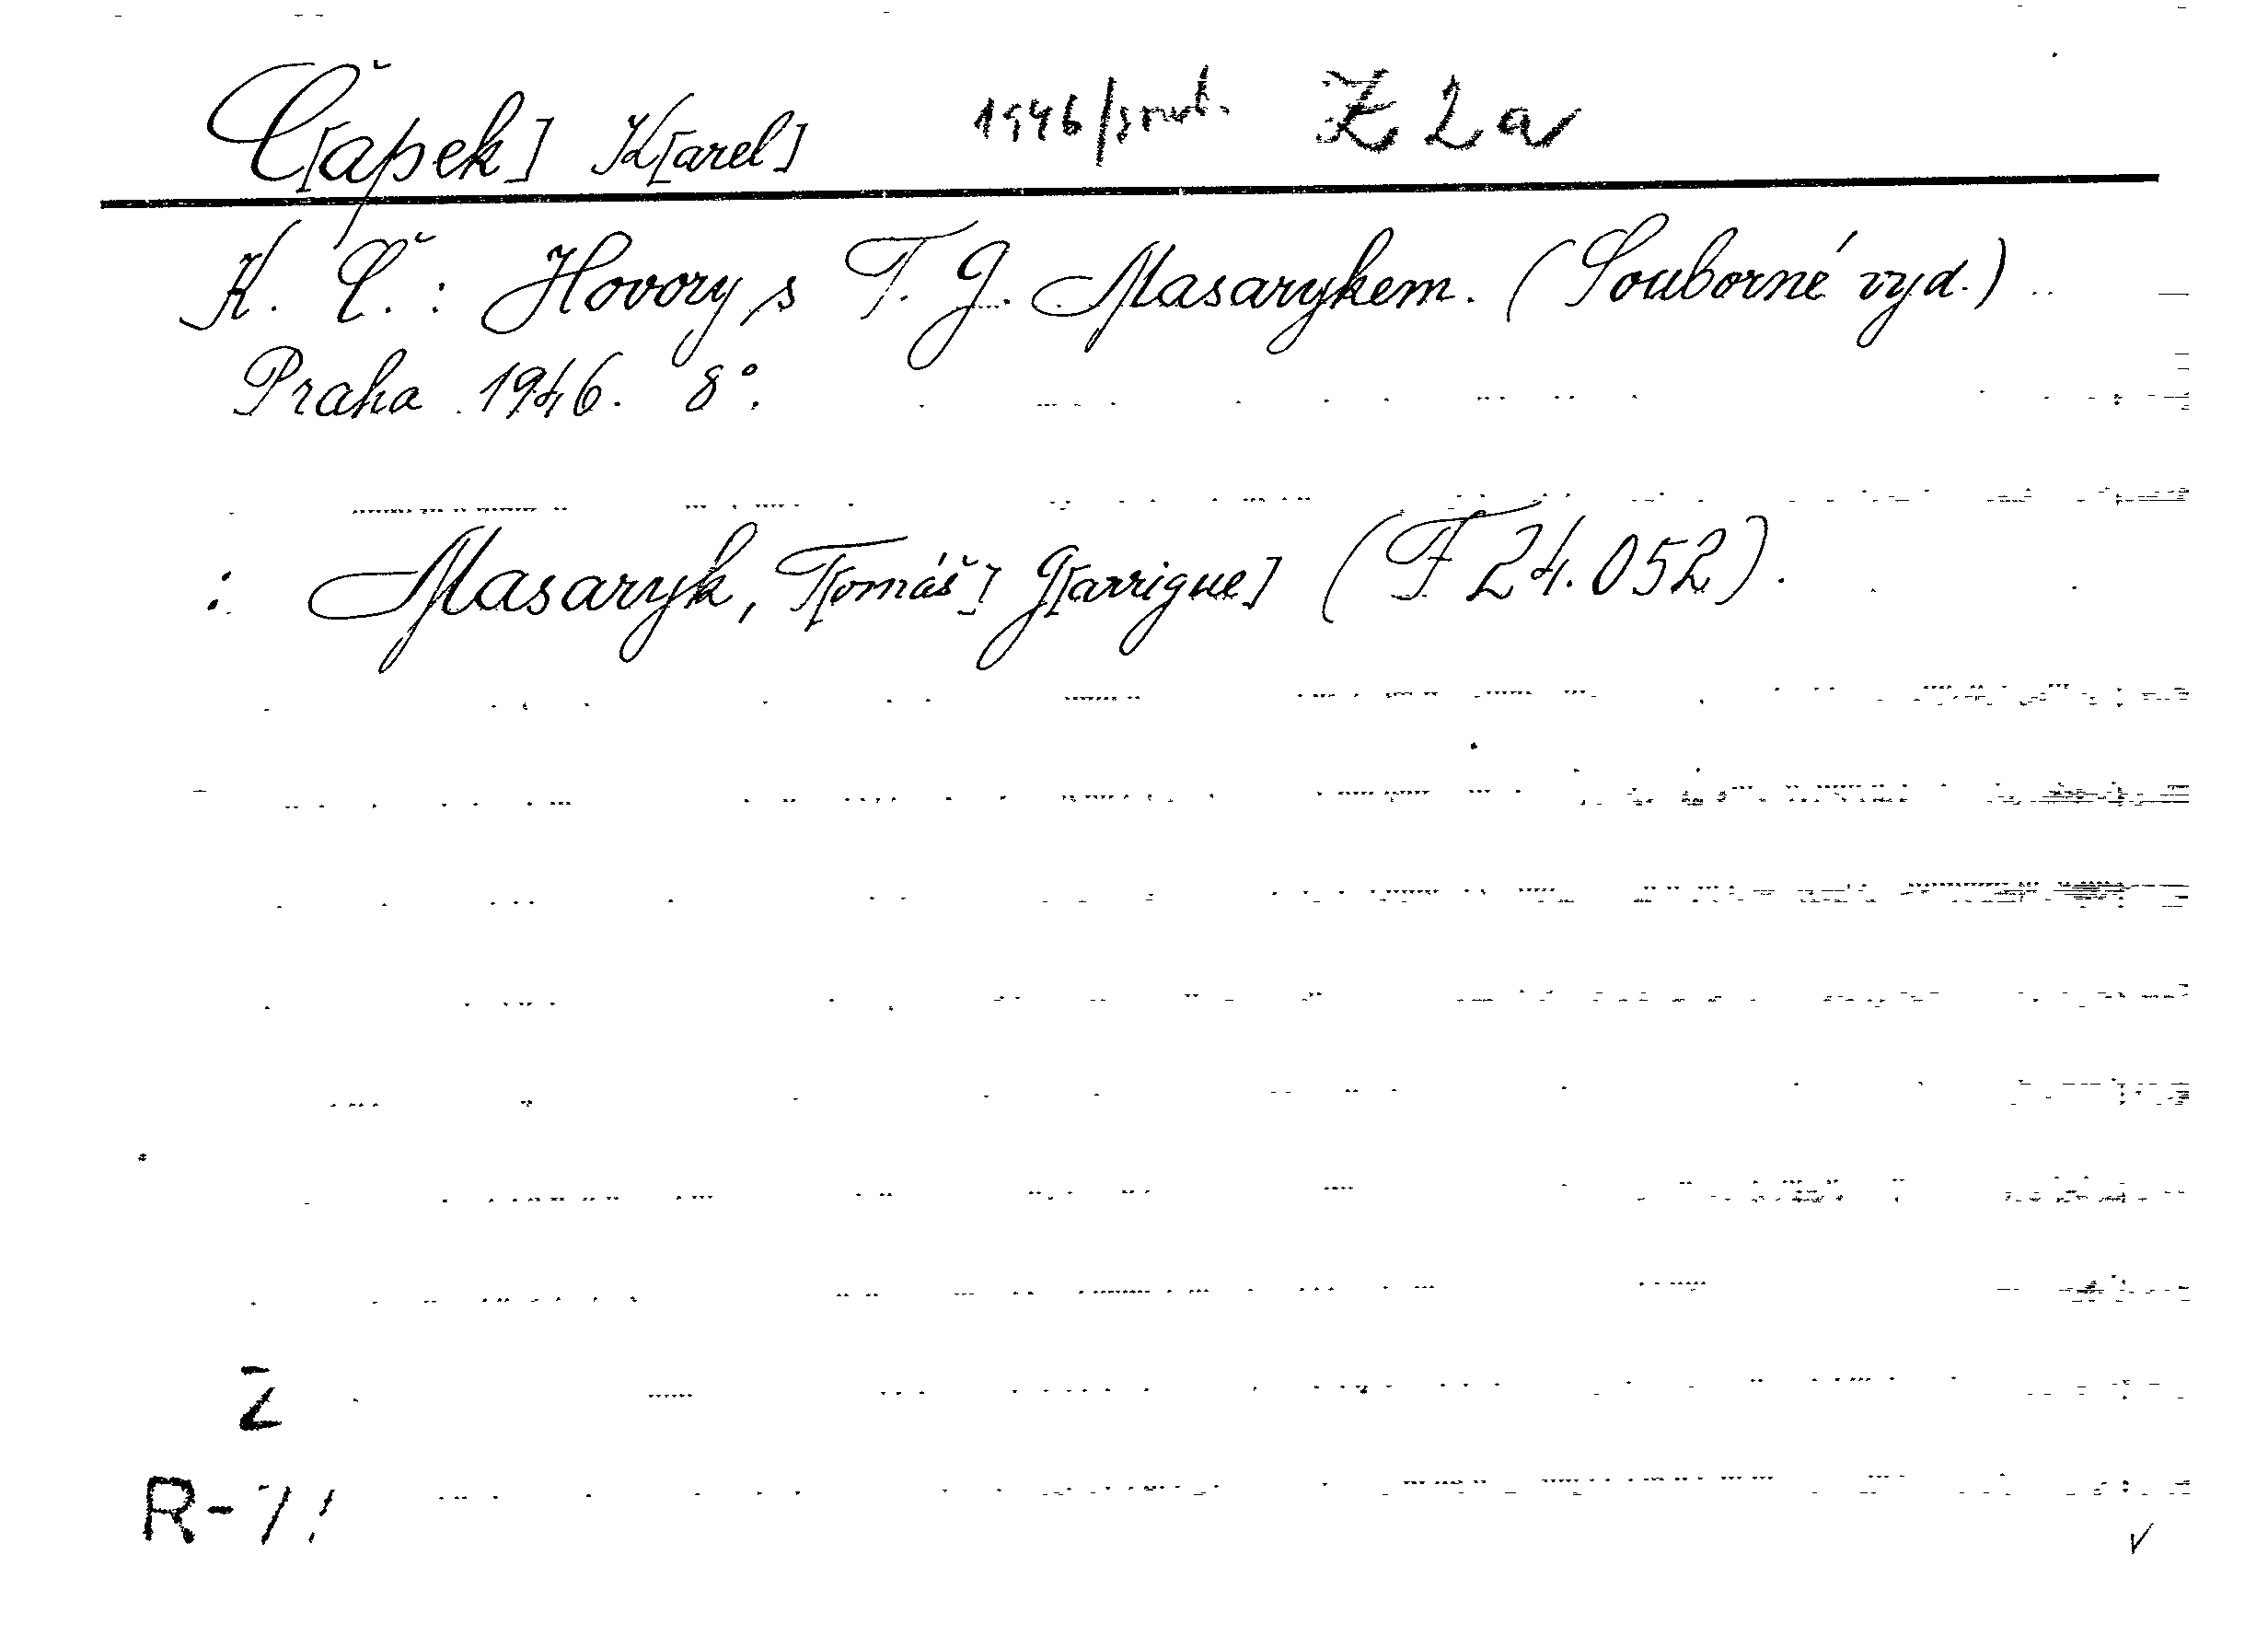 Č[apek] K[arel] 1946/ Z 2a
K. Č.: Hovory s T. G. Masarykem. (Souborné vyd.)
Praha 1946. 8°.
: Masaryk, T[omáš] G[arrigue] (F 24.052).
R-7!